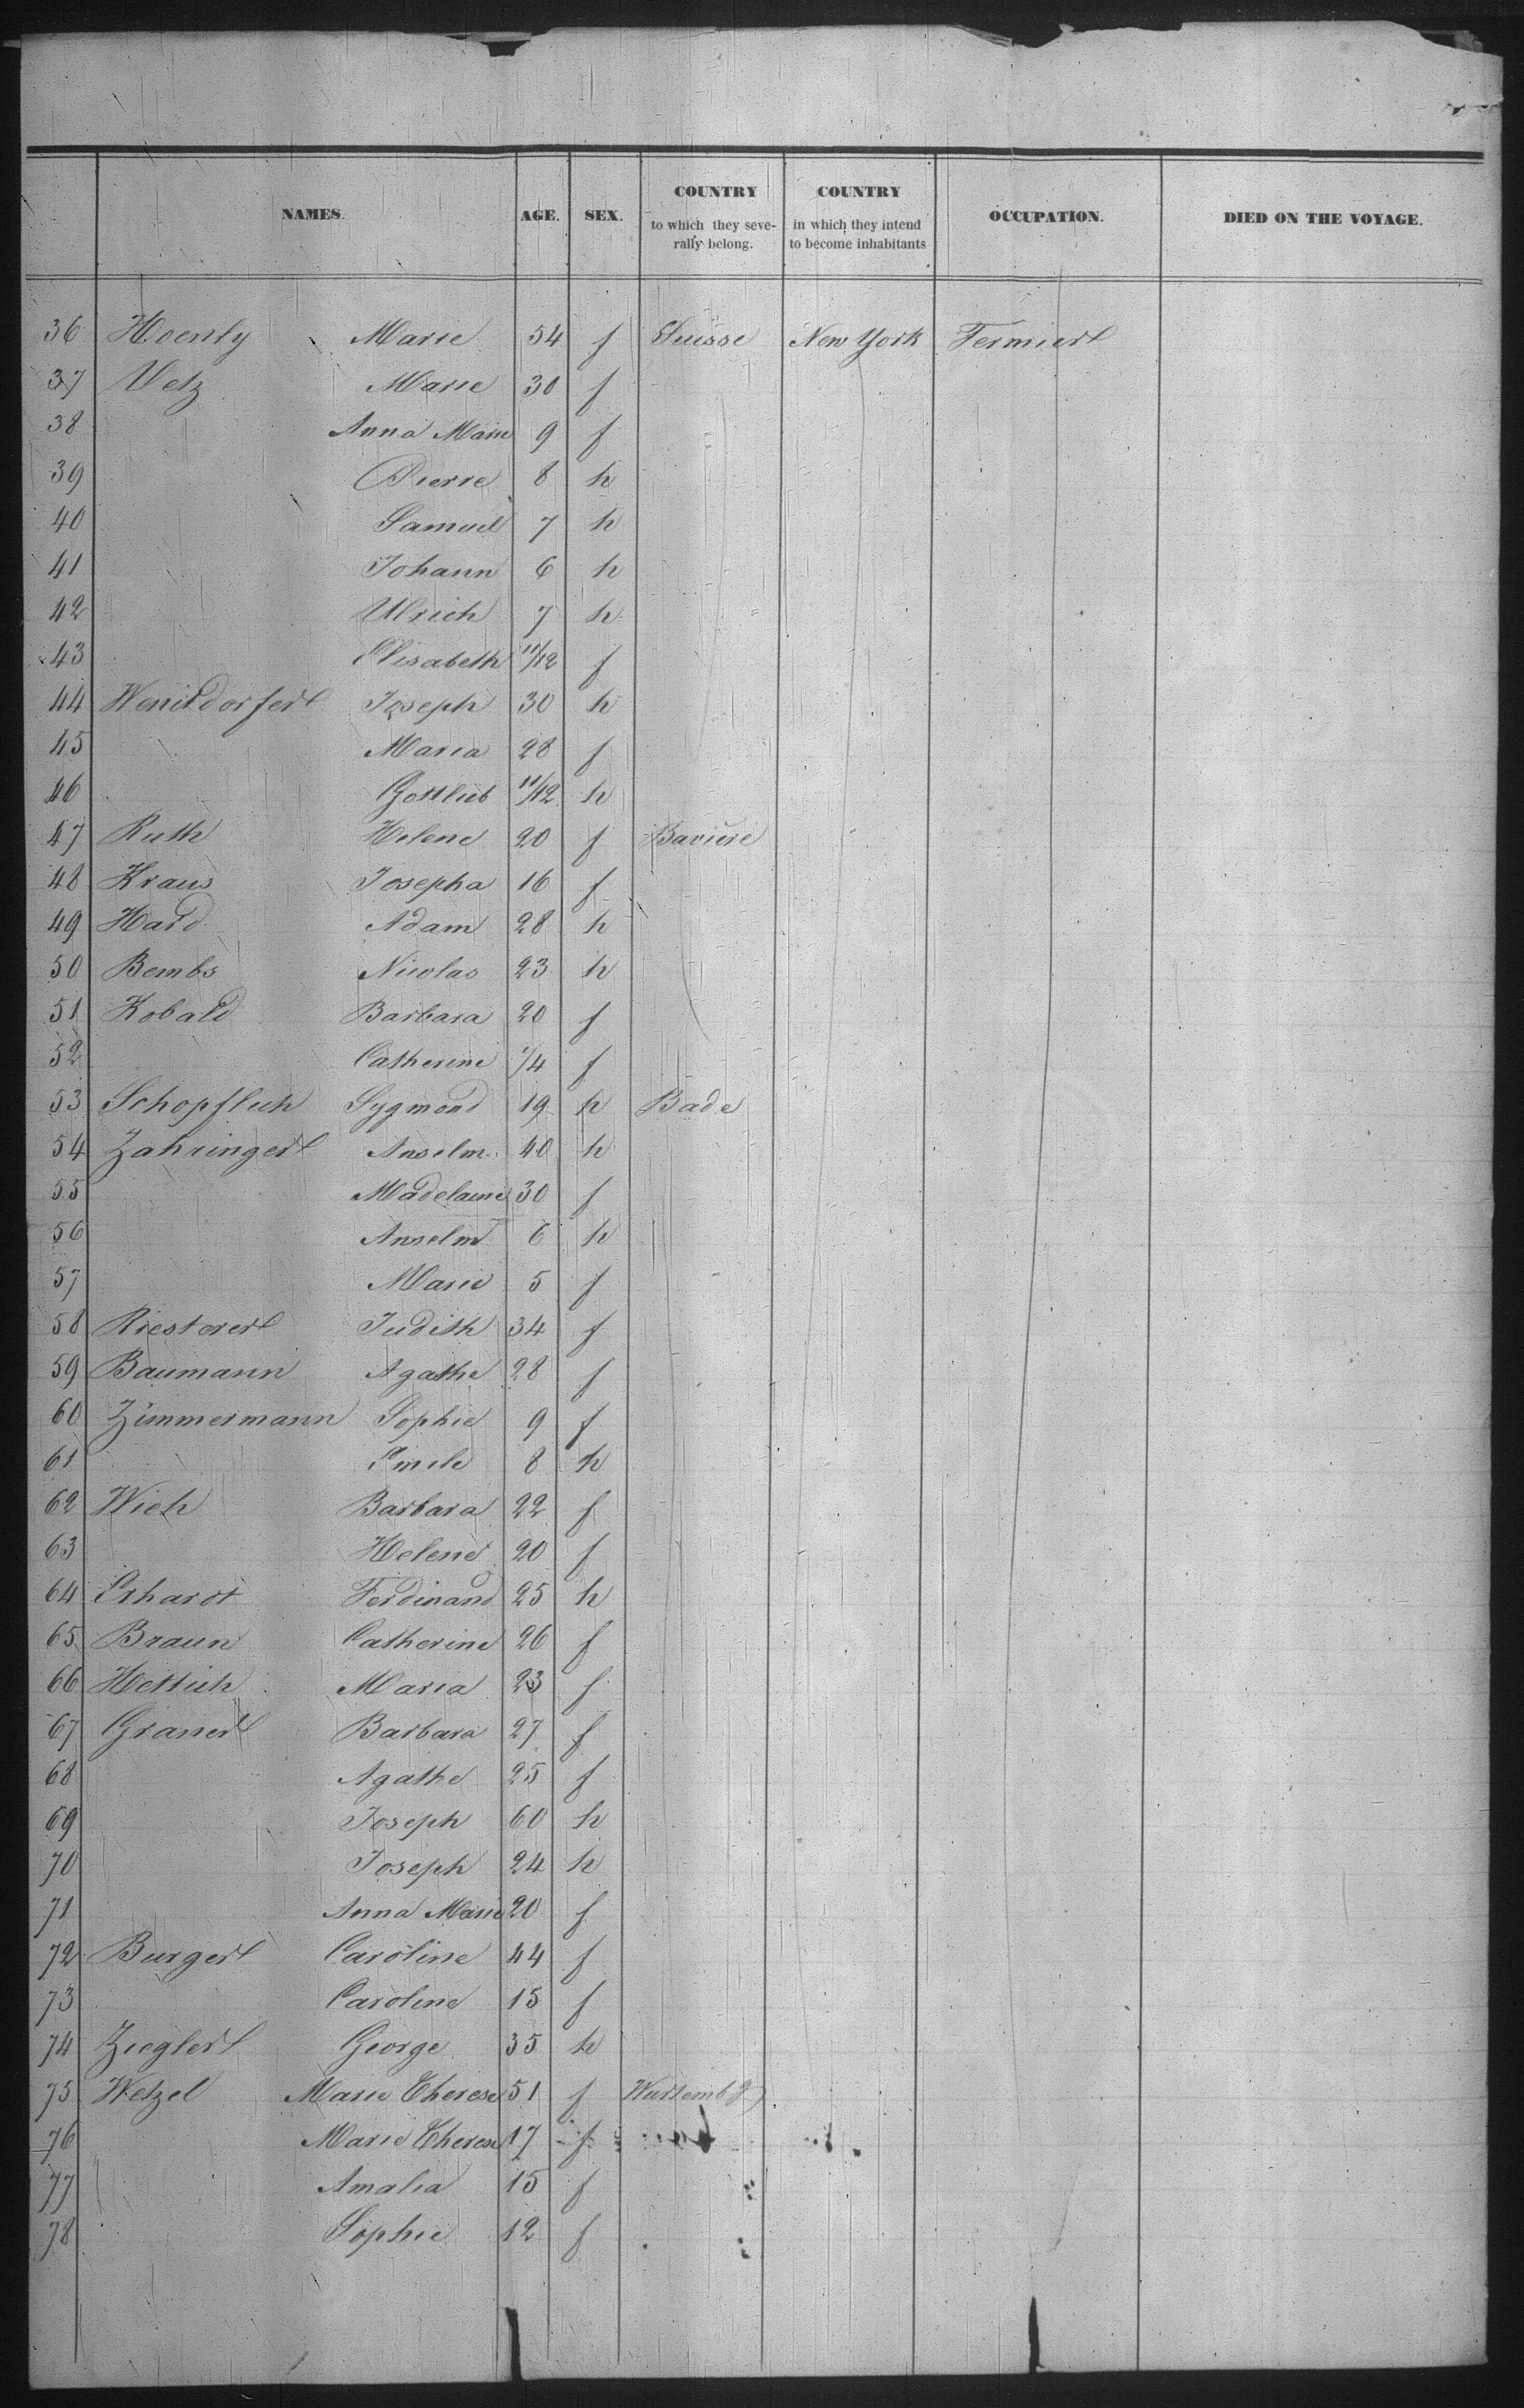 NAMES. AGE. SEX. COUNTRY to which they seve- rally belong. COUNTRY in which they intend to become inhabitants OCCUPATION. DIED ON THE VOYAGE.
36 Hoenly Marie 54 f Suisse New York Fermier
37 Vetz Marie 30 f
38 Anna Marie 9 f
39 Pierre 8 h
40 Samuel 7 h
41 Johann 6 h
42 Ulrich 7 h
43 Elisabeth 11/12 f
44 Joseph 30 h
45 Maria 28 f
46 Gottlieb 11/12 h
47 Ruth Helene 20 f Baviere
48 Kraus Josepha 16 f
49 Hard Adam 28 h
50 Bembs Nicolas 23 h
51 Kobald Barbara 20 f
52 Catherine 1/4 f
53 Schopflich Sygmond 19 h Bade
54 Zahringer Anselm 40 h
55 Madelaine 30 f
56 Anselm 6 h
57 Marie 5 f
58 Riesterer Judith 34 f
59 Baumann Agathe 28 f
60 Zimmermann Sophie 9 f
61 Emile 8 h
62 Wich Barbara 22 f
63 Helene 20 f
64 Erhardt Ferdinand 25 h
65 Braun Catherine 26 f
66 Hettich Maria 23 f
67 Graner Barbara 27 f
68 Agathe 25 f
69 Joseph 60 h
70 Joseph 24 h
71 Anna Marie 20 f
72 Burger Caroline 44 f
73 Caroline 15 f
74 Ziegler George 35 h
75 Wetzel Marie Therese 51 f Wurtembg
76 Marie Therese 17 f
77 Amalia 15 f
78 Sophie 12 f